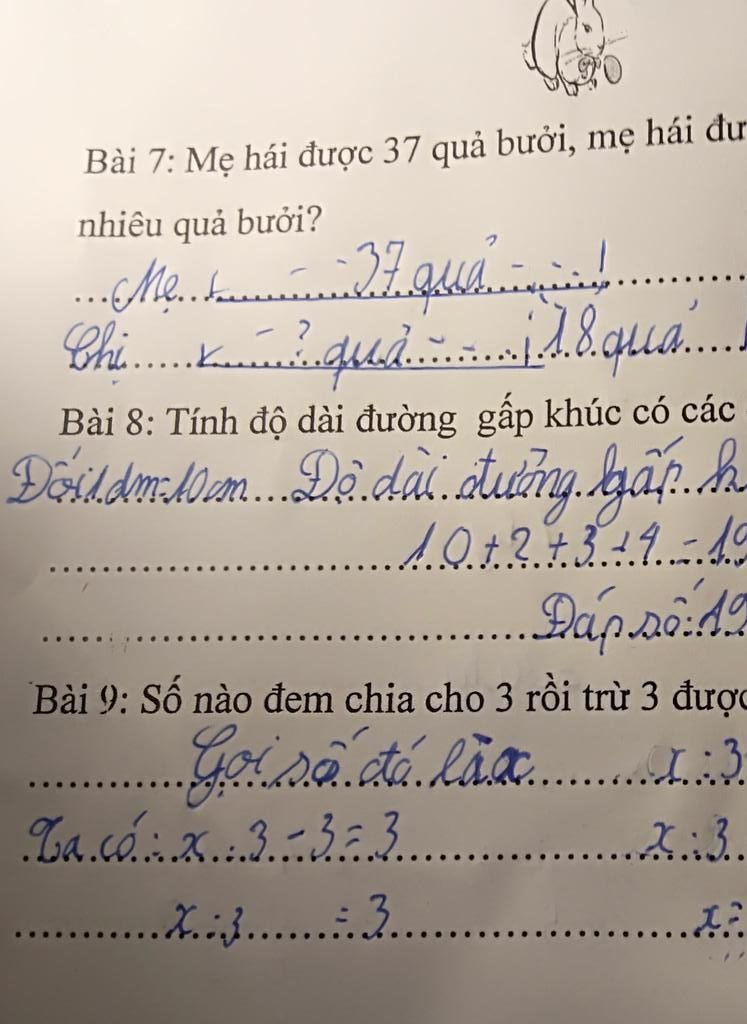 Bài 7: Mẹ hái được 37 quả bưởi, mẹ hái đư
nhiêu quả bưởi?
Mẹ 37 quả
Chị ? quả 18 quả
Bài 8: Tính độ dài đường gấp khúc có các
Đổi 1dm=10cm Độ dài đường gấp kh
10+2+3+4=19
Đáp số: 19
Bài 9: Số nào đem chia cho 3 rồi trừ 3 được
Gọi số đó là x x:3
Ta có: x:3-3=3 x:3
x:3 =3 x=